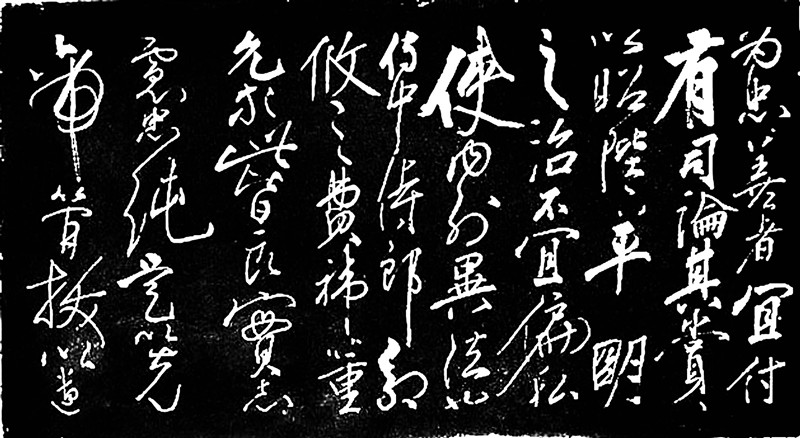 为忠善者宜付
有司論其刑賞
以昭陛下平明
之治不宜偏私
使内外異法也
侍中侍郎郭
攸之費禕董
允等此皆良實志
慮忠純是以先
帝簡拔以遺